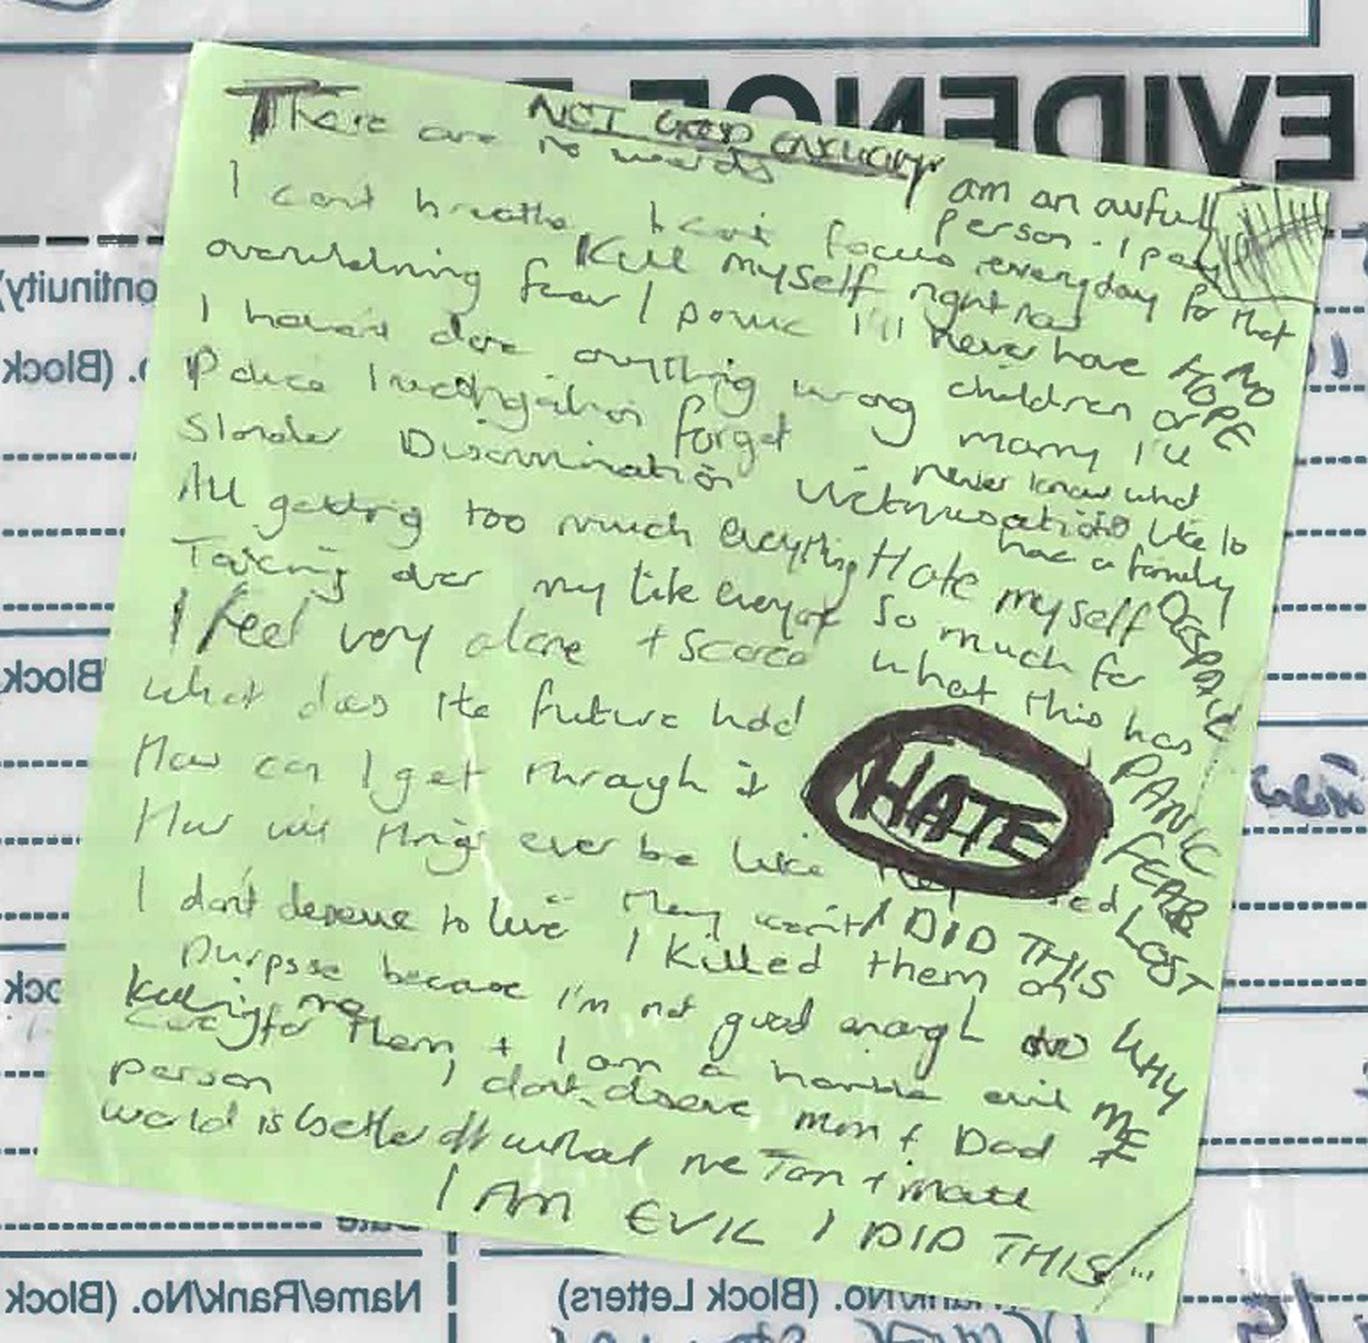 NOT GOOD ENOUGH
There are no words
I am an awful
person. I pay
everyday for that
I can't breathe I can't focus
Kill myself right now
overwhelming fear / panic I'll never have
NO HOPE
children or
I haven't done anything wrong
marry I'll
never know what
Police Investigation forget
Slander Discrimination Victimisation
like to
have a family
All getting too much everything
Hate myself
so much for
what this has
DESPAIR
Taking over my life everyone
I feel very alone + scared
What does the future hold
PANIC
FEAR
LOST
How can I get through it
HATE
How will things ever be like they
I don't deserve to live They won't
I DID THIS
I killed them on
purpose because I'm not good enough
WHY
ME
killing me
care for them + I am a horrible evil
person I don't deserve mum + Dad
world is better off without me Tom + Matt
I AM EVIL I DID THIS...
EVIDENCE
Continuity)
No. (Block
Block
Block
Date
Name/Rank/No. (Block
No. (Block Letters)